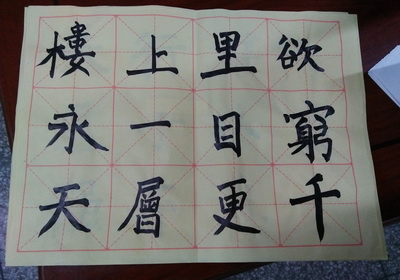 欲窮千
里目更
上一層
樓永天